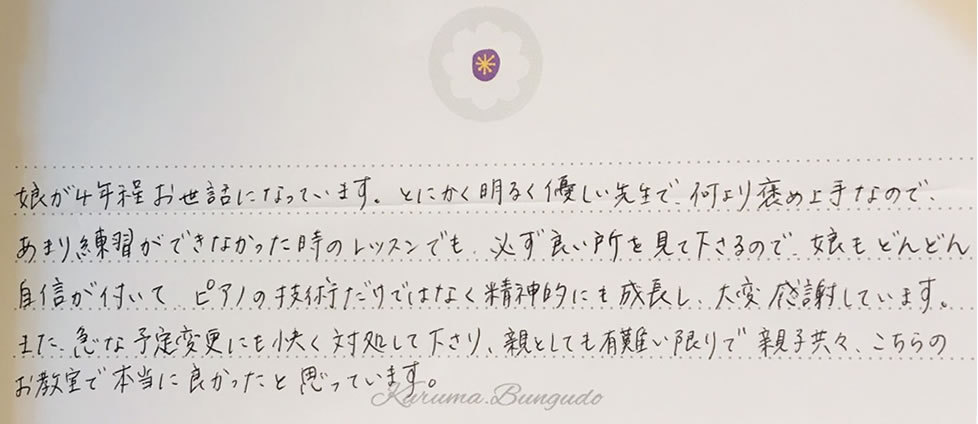 娘が4年程お世話になっています。とにかく明るく優しい先生で、何より褒め上手なので、
あまり練習ができなかった時のレッスンでも、必ず良い所を見て下さるので、娘もどんどん
自信が付いて、ピアノの技術だけではなく精神的にも成長し、大変感謝しています。
また、急な予定変更にも快く対処して下さり、親としても有難い限りで親子共々、こちらの
お教室で本当に良かったと思っています。
Kuruma.Bungudo